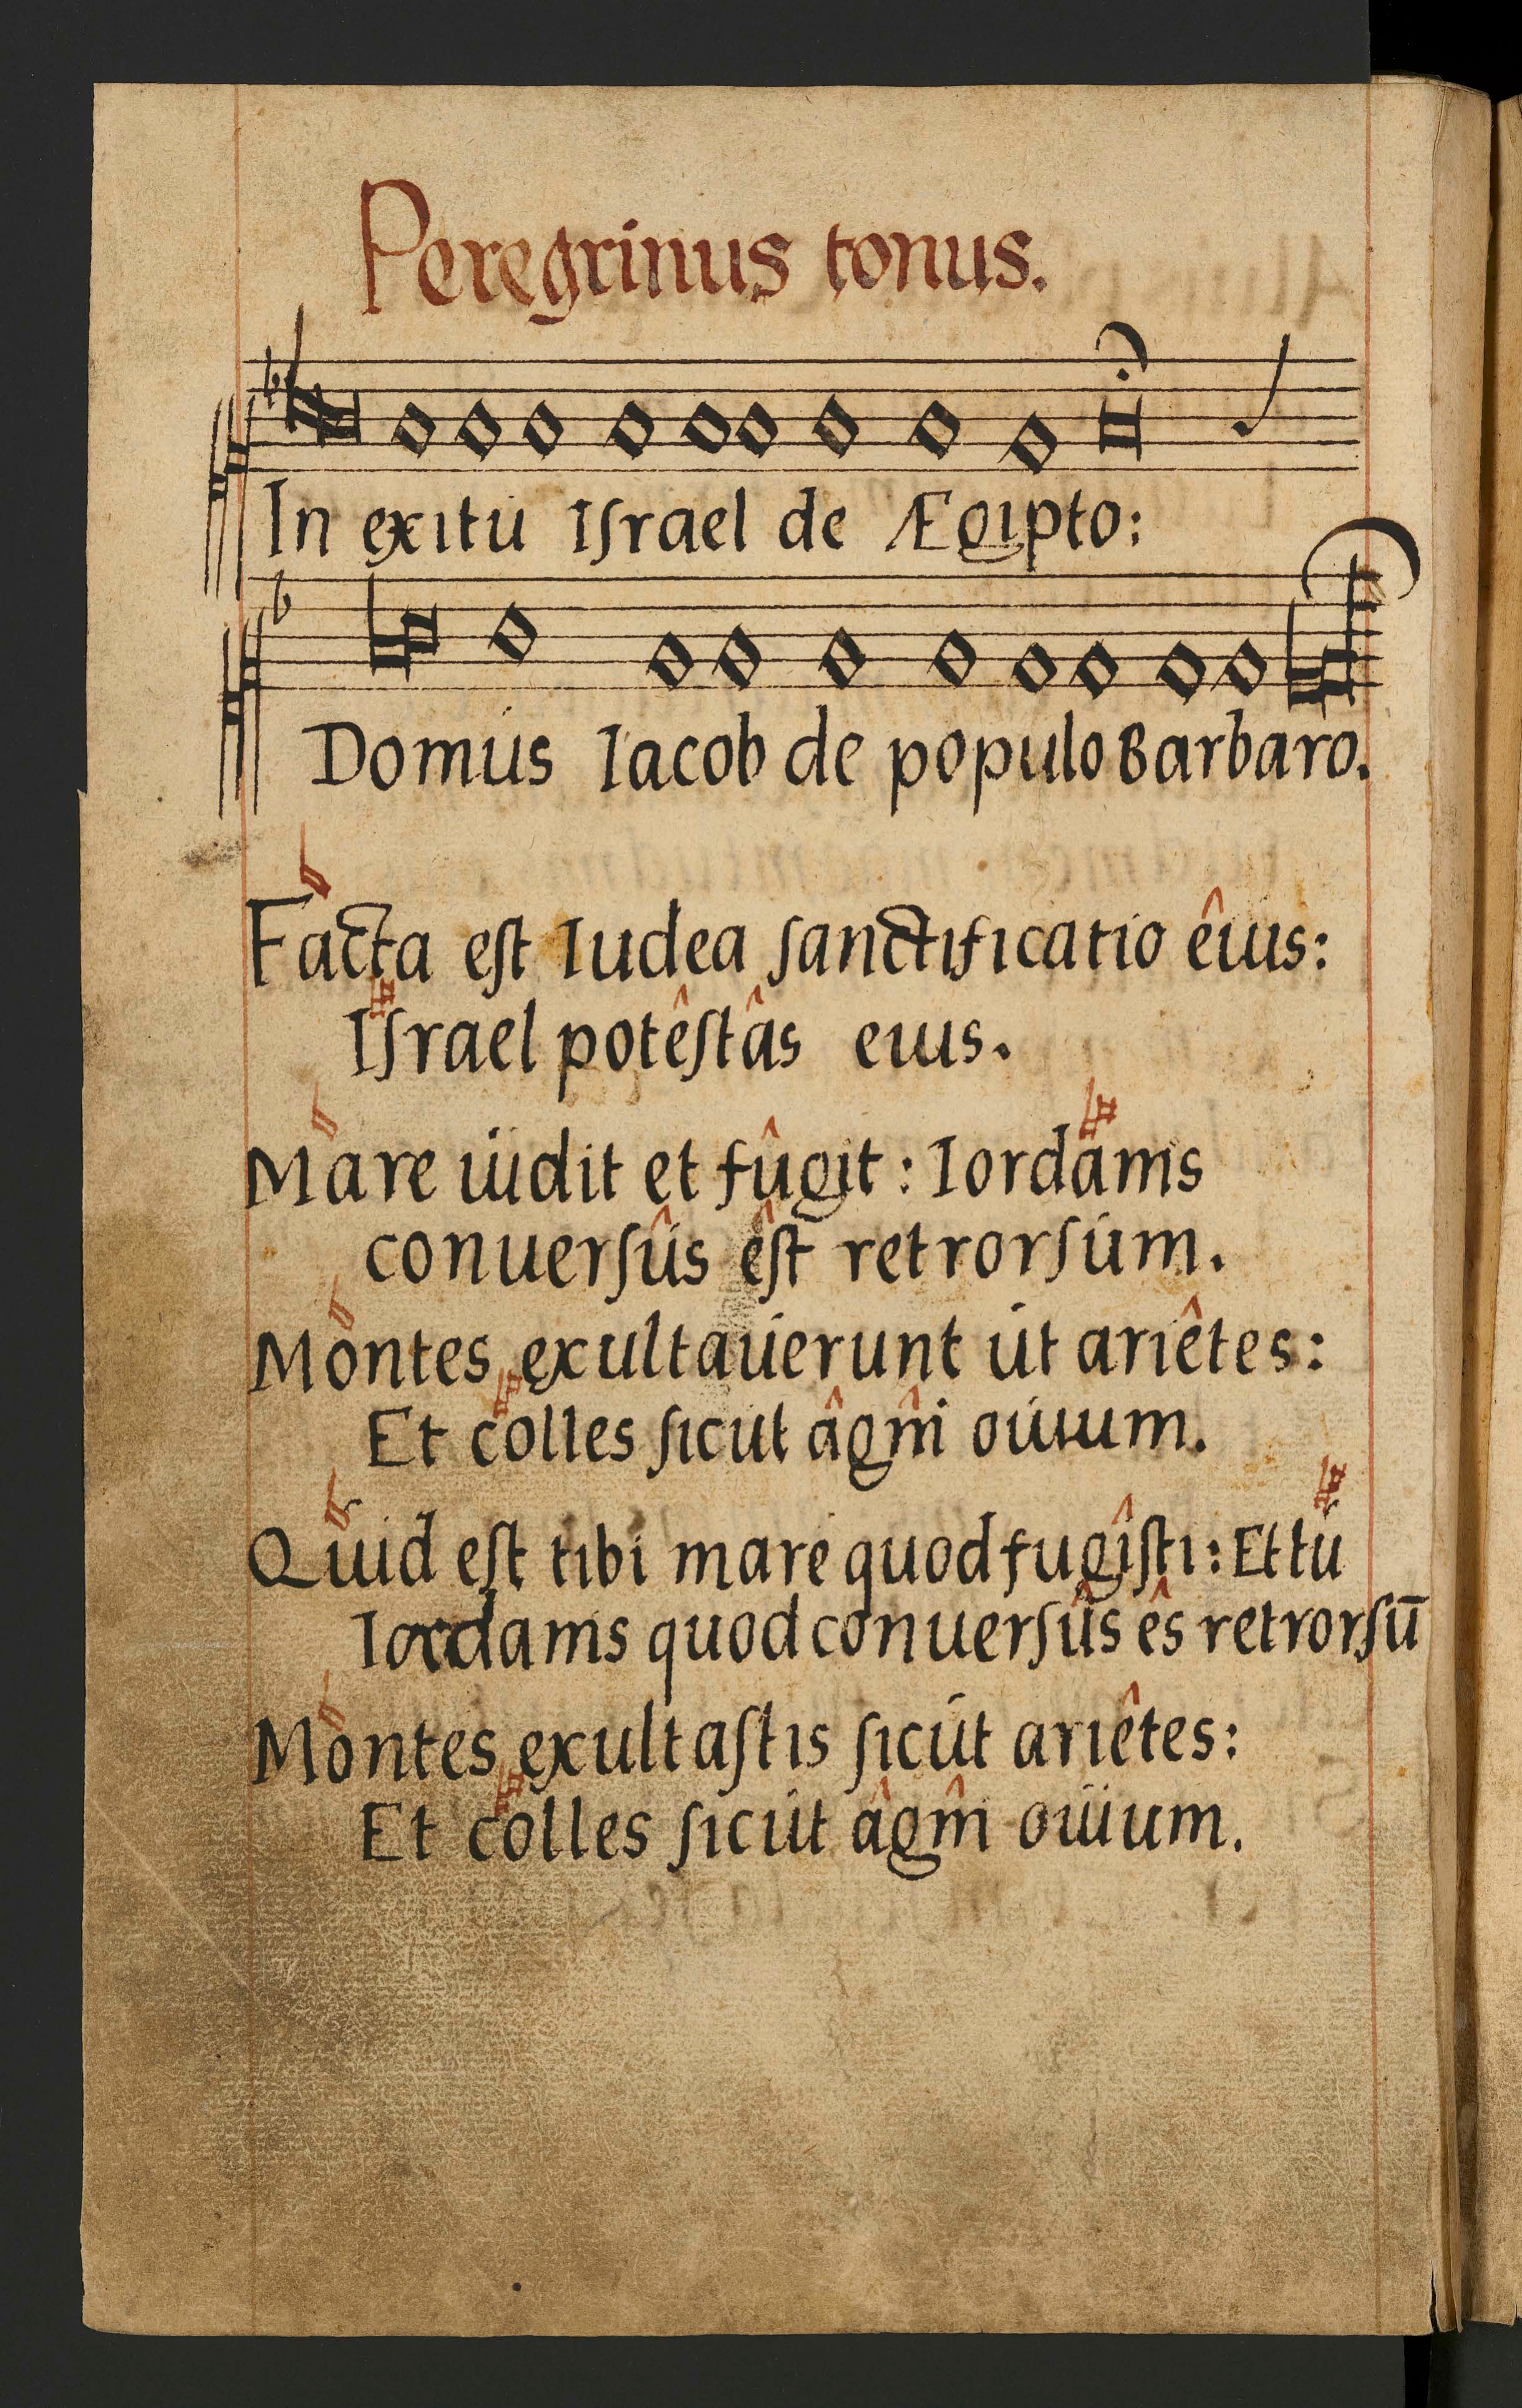 Peregrinus tonus.
In exitu Iſrael de Ægipto:
Domus Iacob de populo Barbaro.
Facta eſt Iudea ſanctificatio êius:
Iſrael potêſtâs eius.
Mare uidit et fûgit: Iordanis
conuerſûs êſt retrorſum.
Montes exultauerunt ut ariêtes:
Et colles ſicut âgnî ouium.
Quid eſt tibi mare quod fugîſti: Et tu
Iordanis quod conuerſûs ês retrorſū
Montes exultaſtis ſicut ariêtes:
Et colles ſicut âgnî ouium.